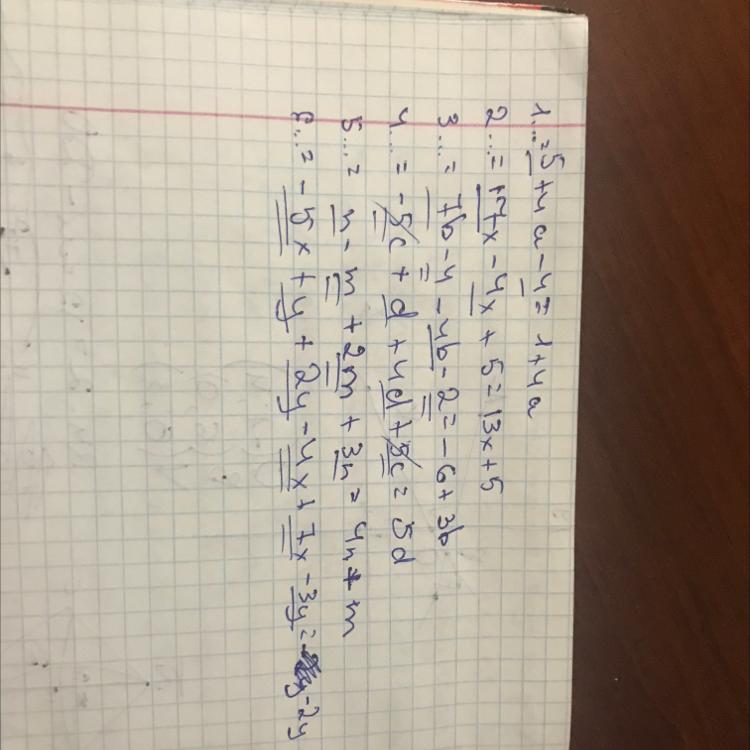 1...=5+4a-4=1+4a
2...=17x-4x+5=13x+5
3...=7b-4-4b-2=-6+3b
4...=-5c+d+4d+5c=5d
5...= n-m+2m+3n=4n+m
6...=-5x+y+2y-4x+7x-3y= -2y